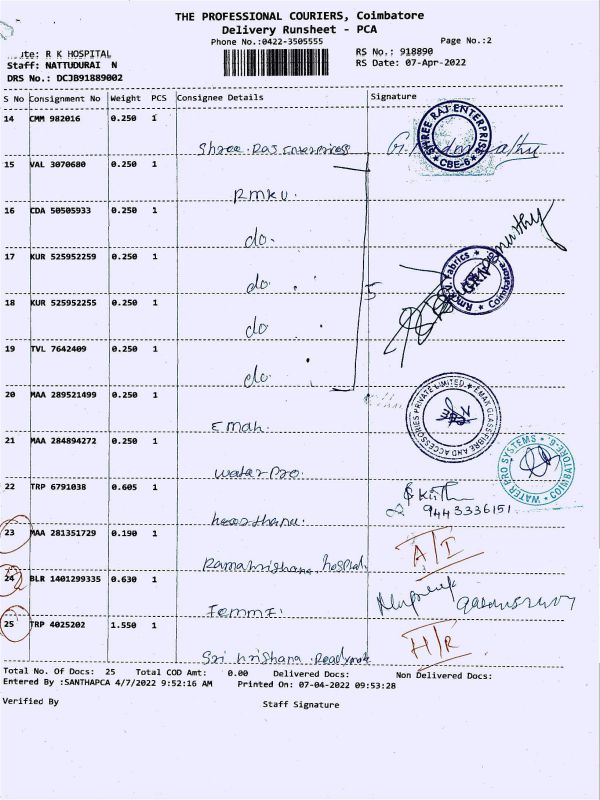 THE PROFESSIONAL COURIERS, Coimbatore
Delivery Runsheet - PCA
Phone No.:0422-3505555 Page No.:2
RS No.: 918890
RS Date: 07-Apr-2022
R K HOSPITAL
Staff: NATTUDURAI N
DRS No.: DCJB91889002
S No Consignment No Weight PCS Consignee Details Signature
14 CMM 982016 0.250 1
Shree Raj Enterprises
SHREE RAJ ENTERPRISE
CBE-6
15 VAL 3070680 0.250 1
RMKV.
16 CDA 50505933 0.250 1
do.
17 KUR 525952259 0.250 1
do.
5
Fabrics
18 KUR 525952255 0.250 1
do
19 TVL 7642409 0.250 1
do.
20 MAA 289521499 0.250 1
Emak.
ACCESSORIES PRIVATE LIMITED * EMAK GLASS FIBRE AND
21 MAA 284894272 0.250 1
waterpro.
WATER PRO SYSTEMS * COIMBATORE-6.
22 TRP 6791038 0.605 1
9443336151
23 MAA 281351729 0.190 1
Ramakrishana hospital.
A/I
24 BLR 1401299335 0.630 1
Femmz.
25 TRP 4025202 1.550 1
Sri krishana Readymate
H/R
Total No. Of Docs: 25 Total COD Amt: 0.00 Delivered Docs: Non Delivered Docs:
Entered By :SANTHAPCA 4/7/2022 9:52:16 AM Printed On: 07-04-2022 09:53:28
Verified By Staff Signature